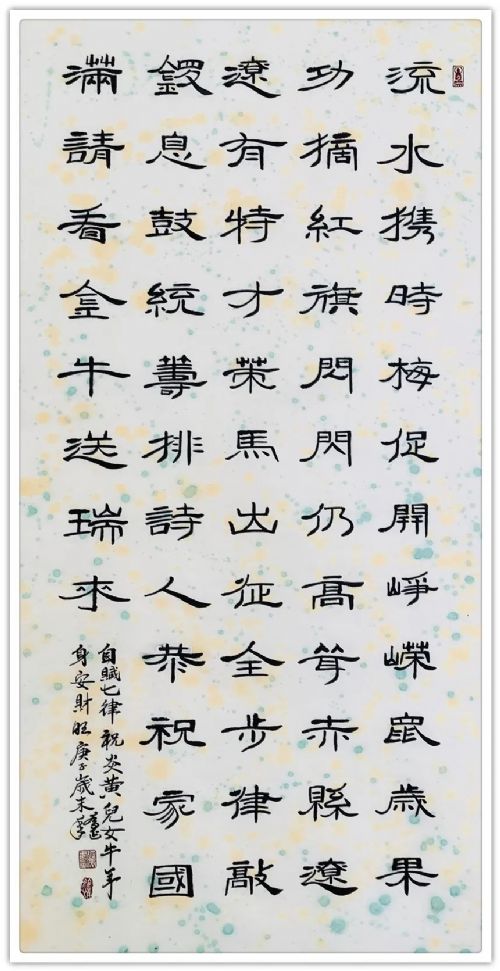 流水携時梅促開崢嶸鼠歲果
功摘紅旗閃閃仍高聳赤縣遼
遼有特才策馬出征全步律敲
鑼息鼓統籌排詩人恭祝家國
滿請看金牛送瑞來
自賦七律祝炎黃兒女牛年
身安財旺庚子歲末